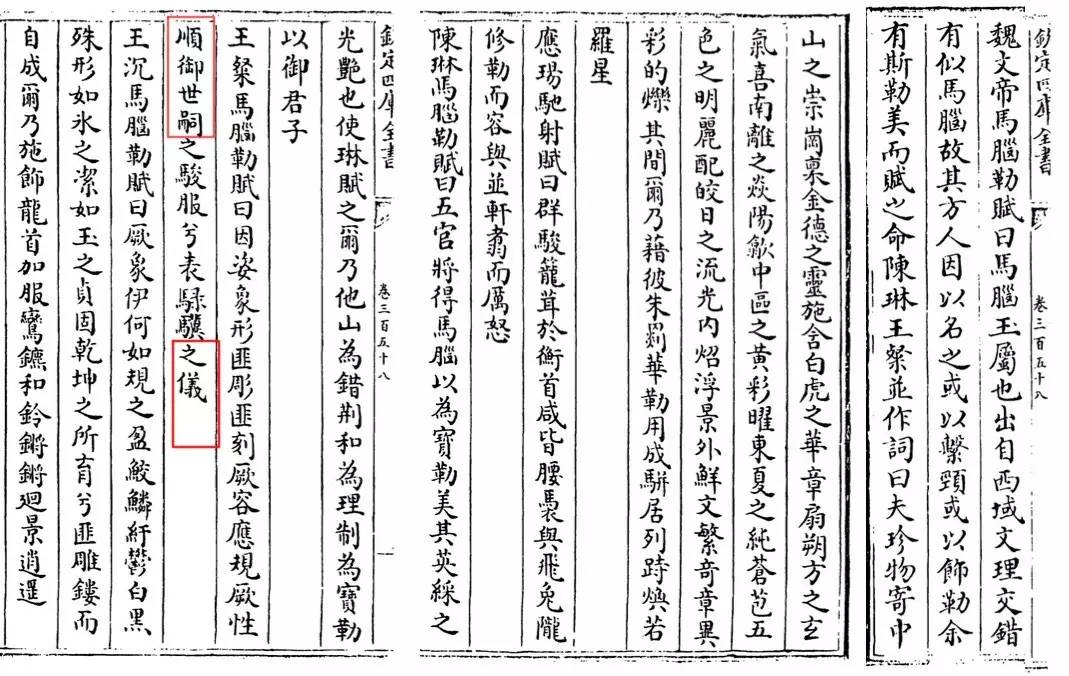 欽定四庫全書
卷三百五十八
魏文帝馬腦勒賦曰馬腦玉屬也出自西域文理交錯
有似馬腦故其方人因以名之或以繫頸或以飾勒余
有斯勒美而賦之命陳琳王粲並作詞曰夫珍物寄中
山之崇崗禀金德之靈施含白虎之華章扇朔方之玄
氣喜南離之焱陽歙中區之黃彩曜東夏之純蒼苞五
色之明麗配皎日之流光内炤浮景外鮮文繁奇章異
彩的爍其間爾乃藉彼朱罽華勒用成駢居列跱煥若
羅星
應瑒馳射賦曰群駿籠茸於衡首咸皆腰褭與飛兔隴
修勒而容與並軒翥而厲怒
陳琳馬腦勒賦曰五官將得馬腦以為寶勒美其英綵之
欽定四庫全書
卷三百五十八
光艷也使琳賦之爾乃他山為錯荆和為理制為寶勒
以御君子
王粲馬腦勒賦曰因姿象形匪彫匪刻厥容應規厥性
順御世嗣之駿服兮表騄驥之儀
王沉馬腦勒賦曰厥象伊何如規之盈鮫鱗紆鬱白黑
殊形如氷之潔如玉之貞固乾坤之所育兮匪雕鏤而
自成爾乃施飾龍首加服鸞鑣和鈴鏘鏘廻景逍遥